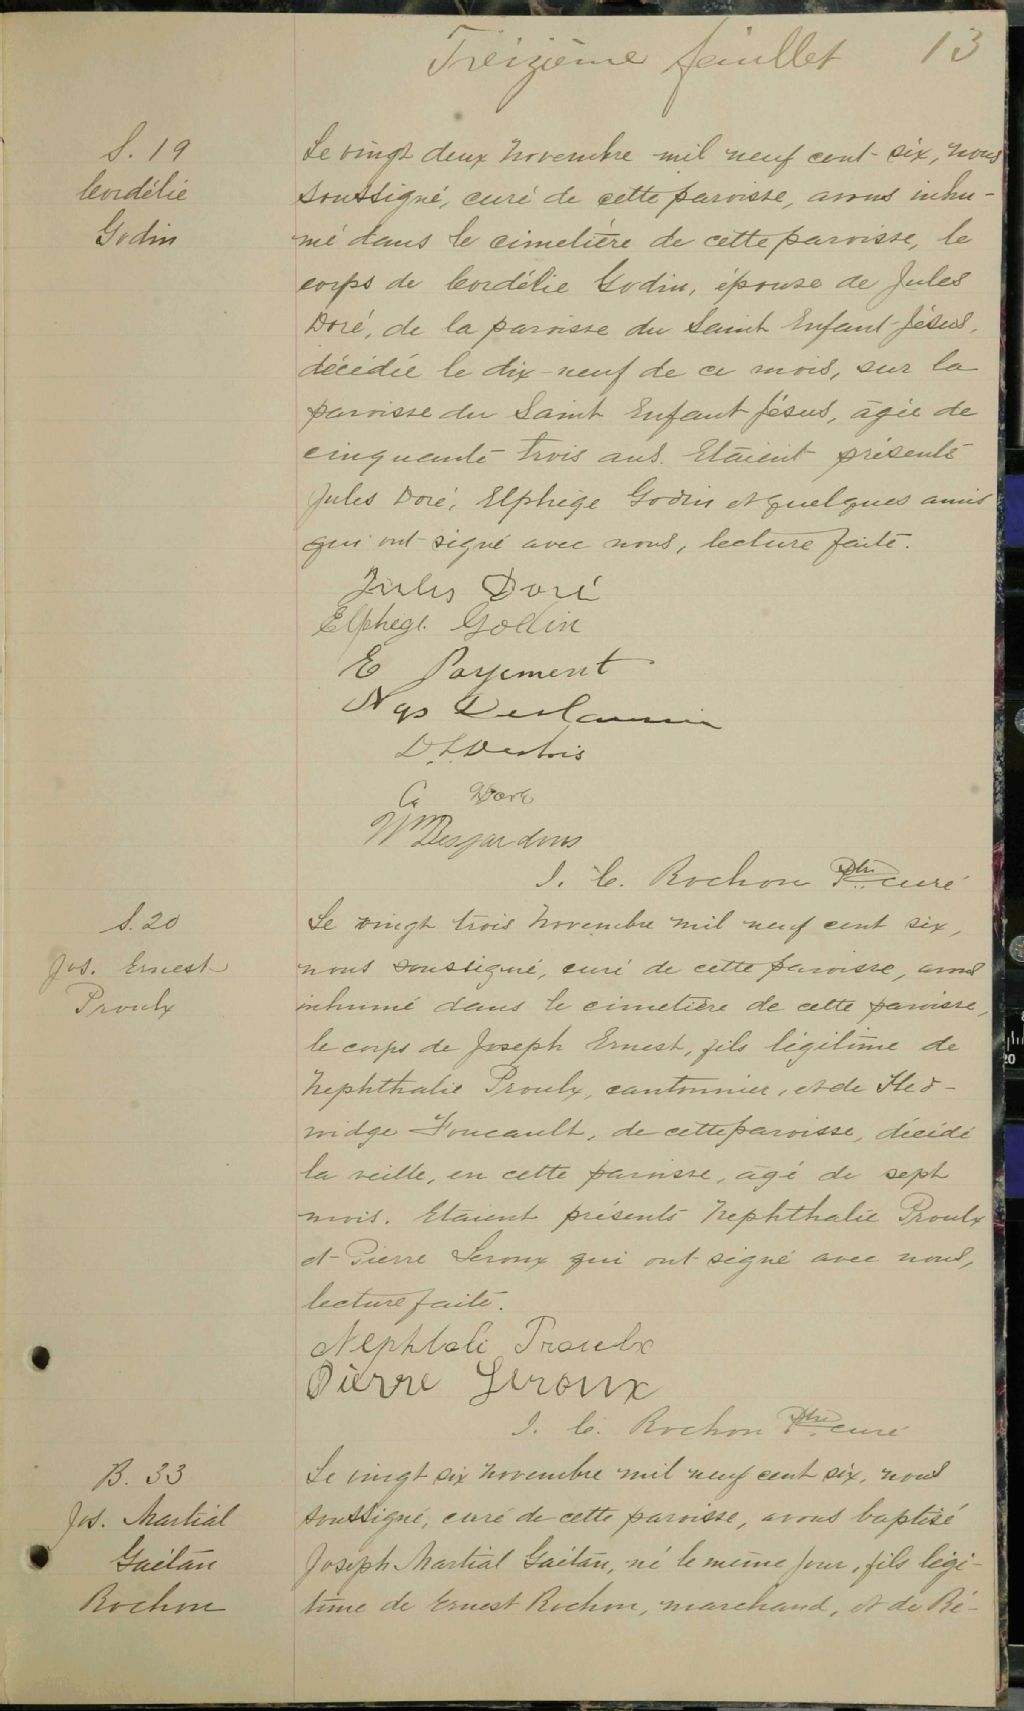 Treizième feuillet 13
S. 19
Cordélie
Godin
Le vingt deux Novembre mil neuf cent-six, nous
soussigné, curé de cette paroisse, avons inhu-
mé dans le cimetière de cette paroisse, le
corps de Cordélie Godin, épouse de Jules
Doré, de la paroisse du Saint Enfant-Jésus,
décédée le dix-neuf de ce mois, sur la
paroisse du Saint Enfant Jésus, âgée de
cinquante trois ans. Etaient présents
Jules Doré, Elphège Godin et quelques amis
qui ont signé avec nous, lecture faite.
Jules Doré
Elphège Godin
E Payement
D. L. Desbois
Doré
Wm Desjardins
J. C. Rochon Ptre curé
S. 20
Jos. Ernest
Proulx
Le vingt trois Novembre mil neuf cent six,
nous soussigné, curé de cette paroisse, avons
inhumé dans le cimetière de cette paroisse,
le corps de Joseph Ernest, fils légitime de
Nephthalie Proulx, cantonnier, et de Hed-
widge Foucault, de cette paroisse, décédé
la veille, en cette paroisse, âgé de sept
mois. Etaient présents Nephthalie Proulx
et Pierre Leroux qui ont signé avec nous,
lecture faite.
Nephtali Proulx
Pierre Leroux
J. C. Rochon Ptre curé
B. 33
Jos. Martial
Gaétan
Rochon
Le vingt six Novembre mil neuf cent six, nous
soussigné, curé de cette paroisse, avons baptisé
Joseph Martial Gaétan, né le même jour, fils légi-
time de Ernest Rochon, marchand, et de Ré-